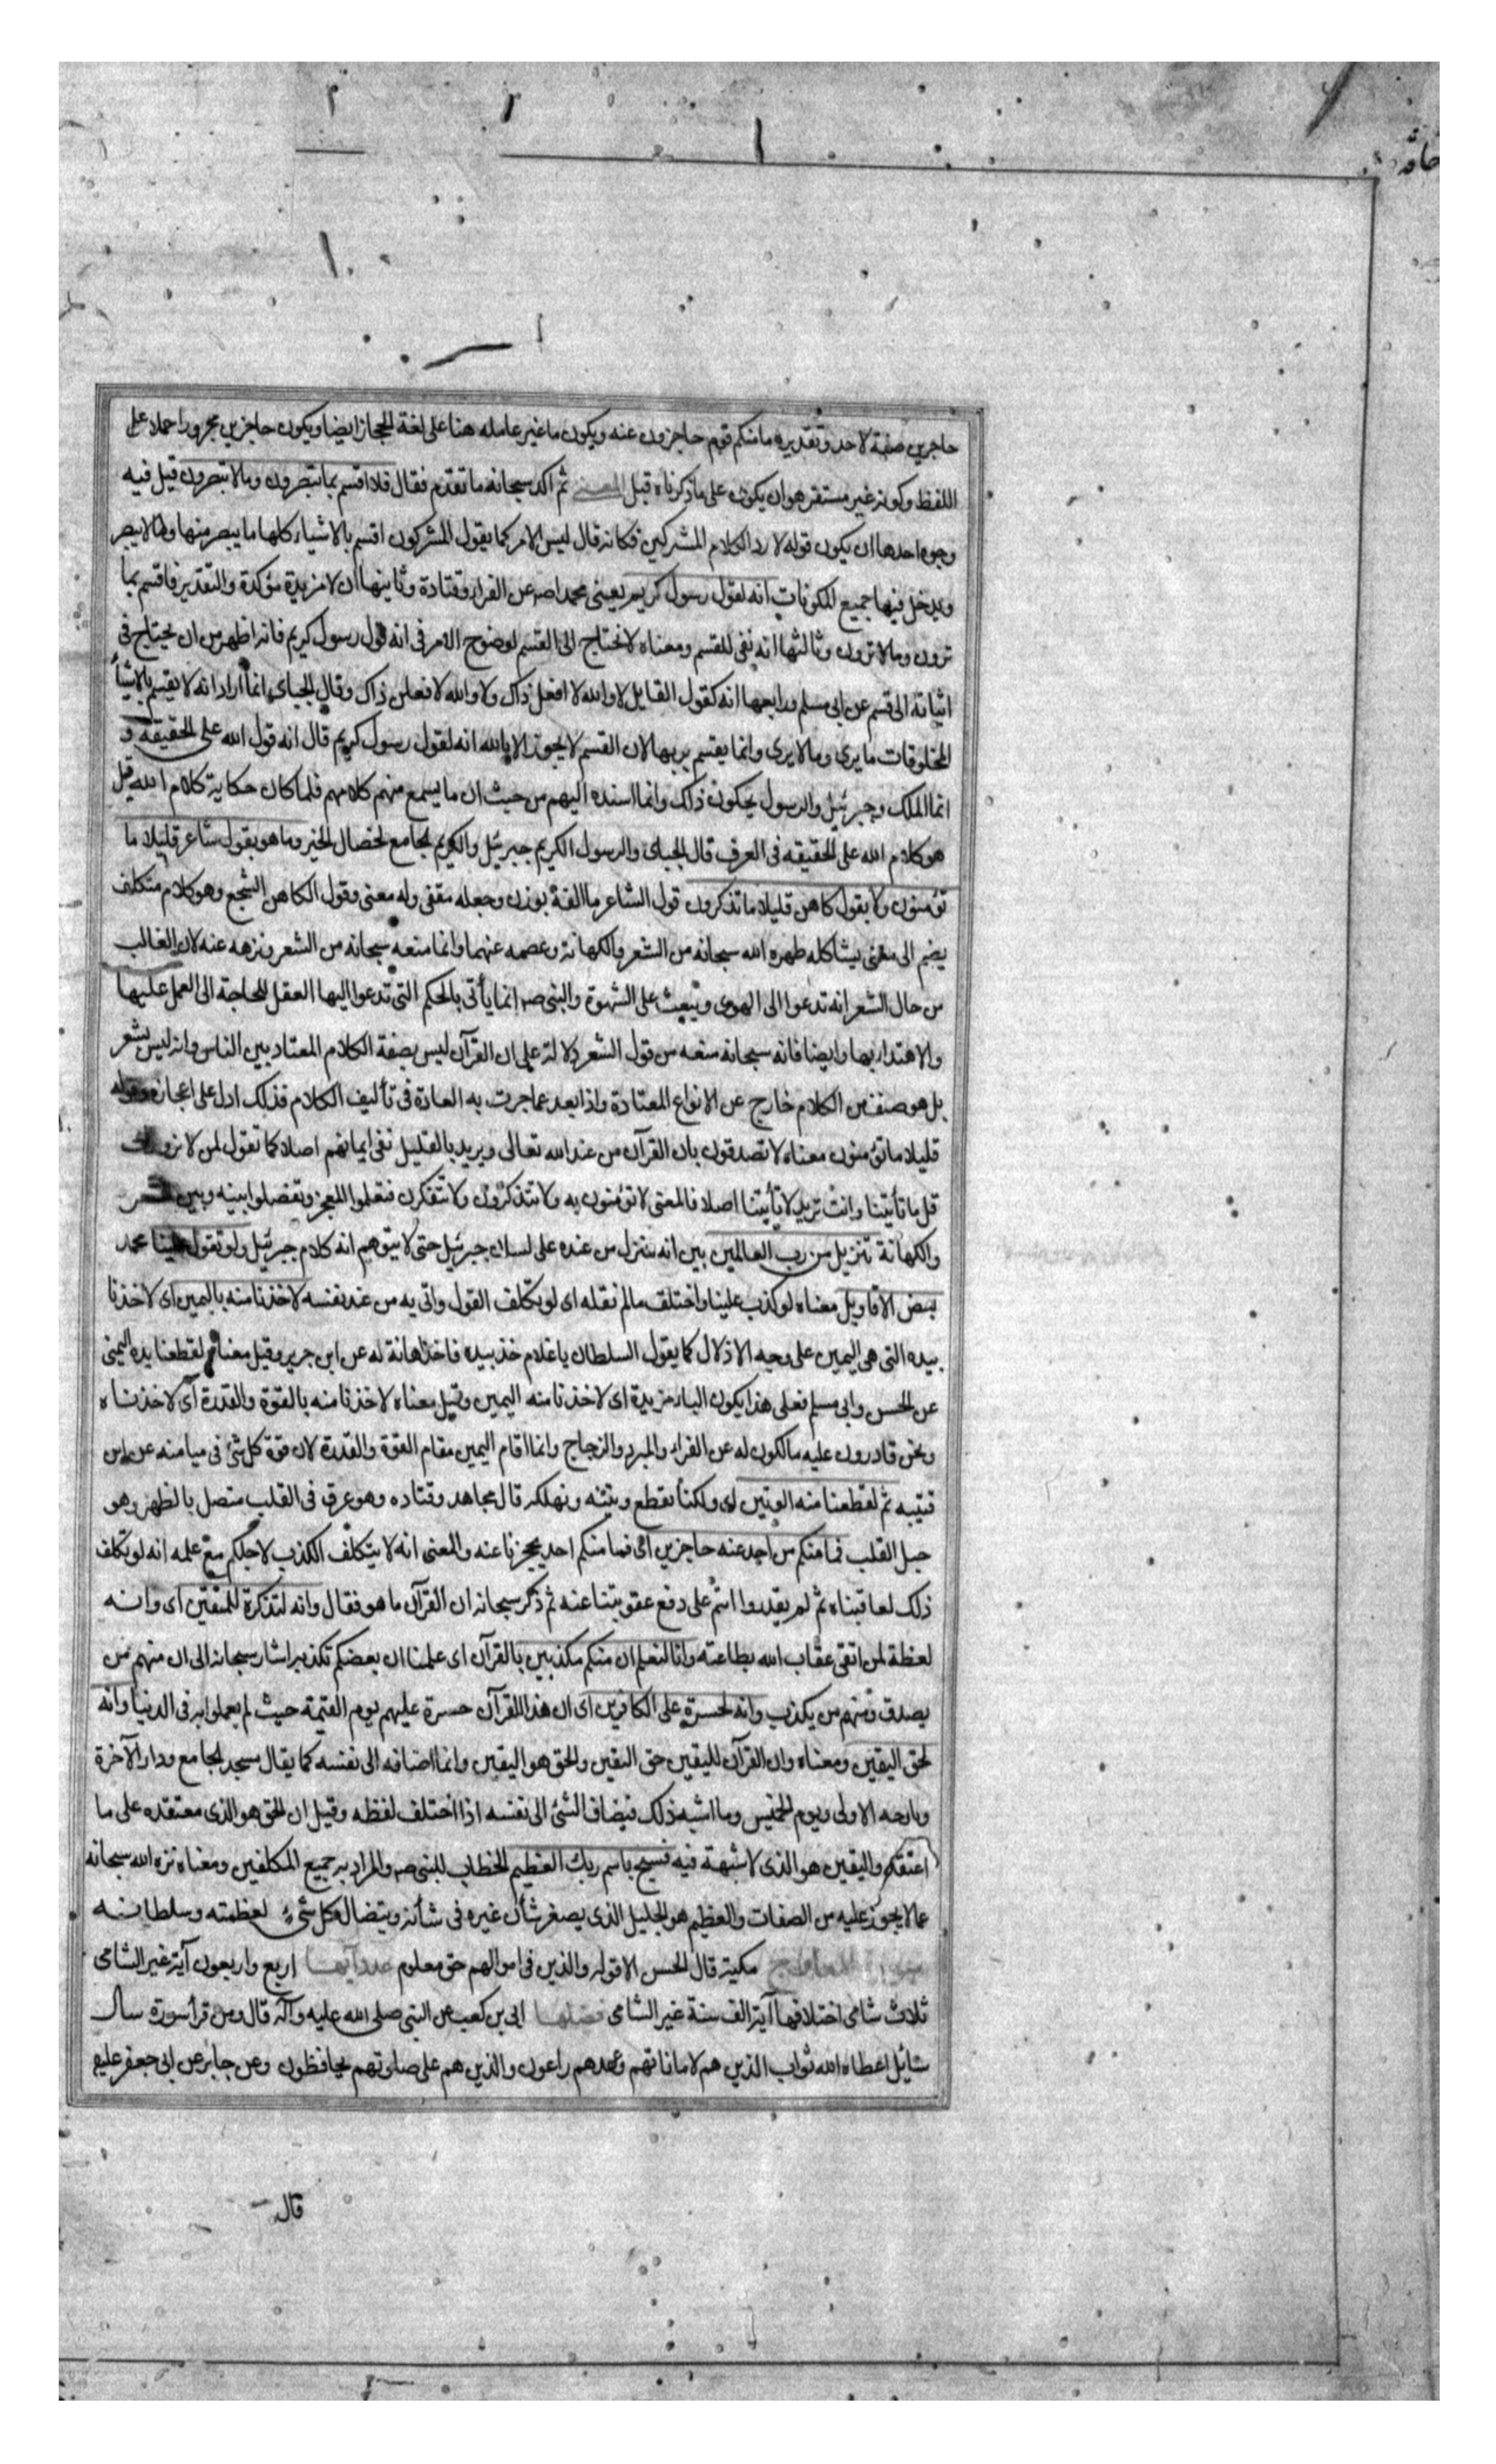 حاقه
حاجزين صفة لاحد وتقديره ما منكم قوم حاجزون عنه ويكون ما غير عامله هنا على لغة الحجاز ايضا ويكون حاجزين مجرورا حملا على
اللفظ وكونه غير مستقر هو ان يكون على ما ذكرناه قبل المعنى ثم اكد سبحانه ما تقدم فقال فلا اقسم بما تبصرون وما لا تبصرون قيل فيه
وجوه احدها ان يكون قوله لا رد الكلام المشركين فكانه قال ليس الامر كما يقول المشركون اقسم بالاشياء كلها ما يبصر منها وما لا يبصر
ويدخل فيها جميع المكونات انه لقول رسول كريم يعنى محمدا صه عن الفراء وقتادة وثانيها ان لا مزيدة مؤكدة والتقدير فاقسم بما
ترون وما لا ترون وثالثها انه نفى للقسم ومعناه لا نحتاج الى القسم لوضوح الامر فى انه قول رسول كريم فانه اظهر من ان يحتاج فى
اثباته الى قسم عن ابى مسلم ورابعها انه كقول القايل لا والله لا افعل ذاك ولا والله لافعلن ذاك وقال الجبائى انما اراد انه لا يقسم بالاشيأ
المخلوقات ما يرى وما لا يرى وانما يقسم بربها لان القسم لا يجوز الا بالله انه لقول رسول كريم قال انه قول الله على الحقيقه و
انما الملك وجبرئيل والرسول يحكون ذلك وانما اسنده اليهم من حيث ان ما يسمع منهم كلامهم فلما كان حكاية كلام الله قيل
هو كلام الله على الحقيقه فى العرف قال الجبائى والرسول الكريم جبرئيل والكريم الجامع لخصال الخير وما هو بقول شاعر قليلا ما
تؤمنون ولا بقول كاهن قليلا ما تذكرون قول الشاعر ما الفه بوزن وجعله مقفى وله معنى وقول الكاهن السجع وهو كلام متكلف
يضم الى معنى يشاكله طهره الله سبحانه من الشعر والكهانة وعصمه عنهما وانما منعه سبحانه من الشعر ونزهه عنه لان الغالب
من حال الشعر انه تدعوا الى الهوى وتبعث على الشهوة والنبى صه انما يأتى بالحكم التى تدعوا اليها العقل للحاجة الى العمل عليها
والاهتداء بها وايضا فانه سبحانه منعه من قول الشعر دلالة على ان القرآن ليس بصفة الكلام المعتاد بين الناس وانه ليس بشعر
بل هو صنف من الكلام خارج عن الانواع المعتادة واذا بعد عما جرت به العادة فى تأليف الكلام فذلك ادل على اعجازه وقوله
قليلا ما تؤمنون معناه لا تصدقون بان القرآن من عند الله تعالى ويريد بالقليل نفى ايمانهم اصلا كما تقول لمن لا يزورك
قل ما تأتينا وانت تريد لا تأتينا اصلا فالمعنى لا تؤمنون به ولا تتذكرون ولا تتفكرن فتعلموا المعجز وتفصلوا بينه وبين الشعر
والكهانة تنزيل من رب العالمين بين انه منزل من عنده على لسان جبرئيل حتى لا يتوهم انه كلام جبرئيل ولو تقول علينا محمد
بعض الاقاويل معناه لو كذب علينا واختلف ما لم نقله اى لو تكلف القول واتى به من عند نفسه لاخذنا منه باليمين اى لاخذنا
بيده التى هى اليمين على وجه الاذلال كما يقول السلطان يا غلام خذ بيده فاخذها اهانة له عن ابن جرير وقيل معناه لقطعنا يده اليمنى
عن الحسن وابى مسلم فعلى هذا يكون الباء مزيدة اى لاخذنا منه اليمين وقيل معناه لاخذنا منه بالقوة والقدرة اى لاخذناه
ونحن قادرون عليه مالكون له عن الفراء والمبرد والزجاج وانما اقام اليمين مقام القوة والقدرة لان قوة كل شئ فى ميامنه عن ابن
قتيبه ثم لقطعنا منه الوتين اى ولكنا نقطع وتينه ونهلكه قال مجاهد وقتاده وهو عرق فى القلب متصل بالظهر وهو
حبل القلب فما منكم من احد عنه حاجزين اى فما منكم احد يحجزنا عنه والمعنى انه لا يتكلف الكذب لاجلكم مع علمه انه لو تكلف
ذلك لعاقبناه ثم لم يقدروا انتم على دفع عقوبتنا عنه ثم ذكر سبحانه ان القرآن ما هو فقال وانه لتذكرة للمتقين اى وانه
لعظة لمن اتقى عقاب الله بطاعته وانا لنعلم ان منكم مكذبين بالقرآن اى علمنا ان بعضكم تكذبه اشار سبحانه الى ان منهم من
يصدق ومنهم من يكذب وانه لحسرة على الكافرين اى ان هذا القرآن حسرة عليهم يوم القيمة حيث لم يعملوا به فى الدنيا وانه
لحق اليقين ومعناه وان القرآن لليقين حق اليقين والحق هو اليقين وانما اضافه الى نفسه كما يقال مسجد الجامع ودار الآخرة
وبارحه الاولى ويوم الخميس وما اشبه ذلك فيضاف الشئ الى نفسه اذا اختلف لفظه وقيل ان الحق هو الذى معتقده على ما
اعتقده واليقين هو الذى لا شبهة فيه فسبح باسم ربك العظيم الخطاب للنبى صه والمراد به جميع المكلفين ومعناه نزه الله سبحانه
عما لا يجوز عليه من الصفات والعظيم هو الجليل الذى يصغر شأن غيره فى شأنه ويتضال كل شئ لعظمته وسلطانه
سورة المعارج مكية قال الحسن الا قوله والذين فى اموالهم حق معلوم عدد آيها اربع واربعون آية غير الشامى
ثلاث شامى اختلافها آية الف سنة غير الشامى فضلها ابى بن كعب عن النبى صلى الله عليه وآله قال ومن قرأ سورة سأل
سائل اعطاه الله ثواب الذين هم لاماناتهم وعهدهم راعون والذين هم على صلوتهم يحافظون وعن جابر عن ابى جعفر عليه
قال